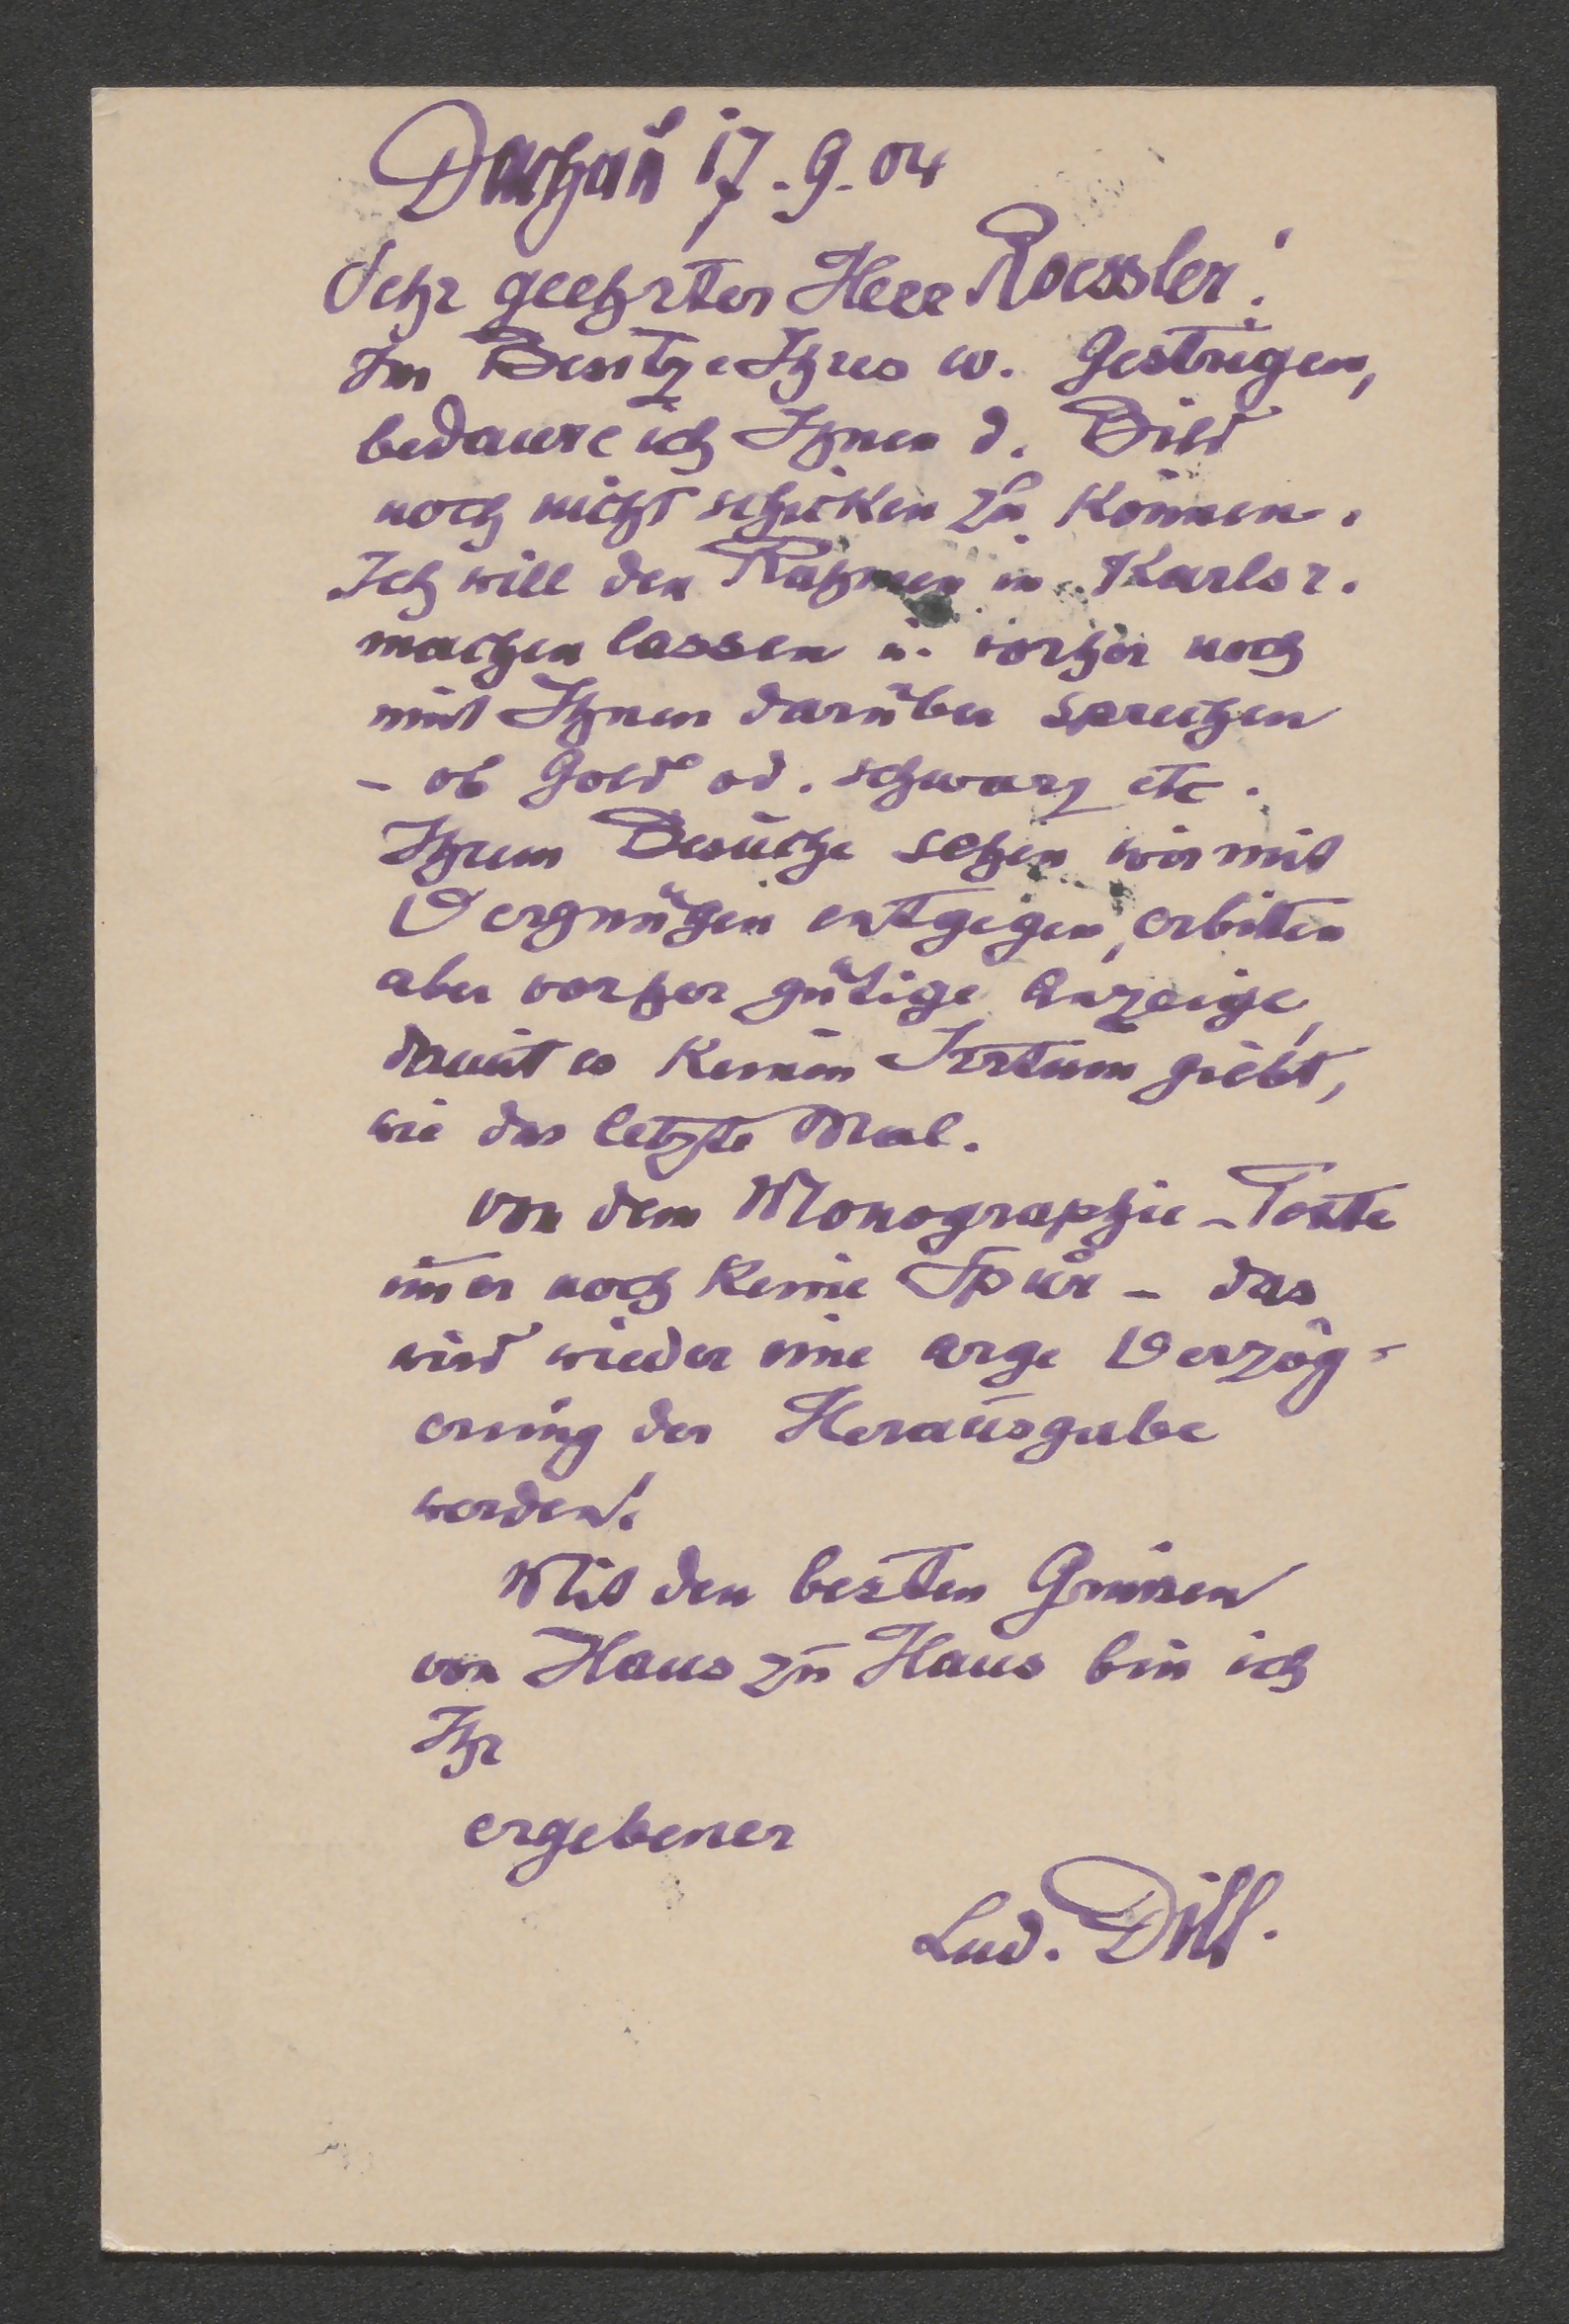 Dachau 17.9.04
Sehr geehrter Herr Roessler!
Im Besitze Ihres w. Gestrigen,
bedaure ich Ihnen d. Bild
noch nicht schicken zu können.
Ich will den Rahmen in Karlsr.
machen lassen u. vorher noch
mit Ihnen darüber sprechen
- ob Gold od. schwarz etc.
Ihrem Besuche sehen wir mit
Vergnügen entgegen, erbitten
aber vorher gütige Anzeige,
damit es keinen Irrtum giebt,
wie das letzte Mal.
Von dem Monographie-Texte
im̄er noch keine Spur - das
wird wieder eine arge Verzög-
erung der Herausgabe
werden!
Mit den besten Grüssen
von Haus zu Haus bin ich
Ihr
ergebener
Lud. Dill.